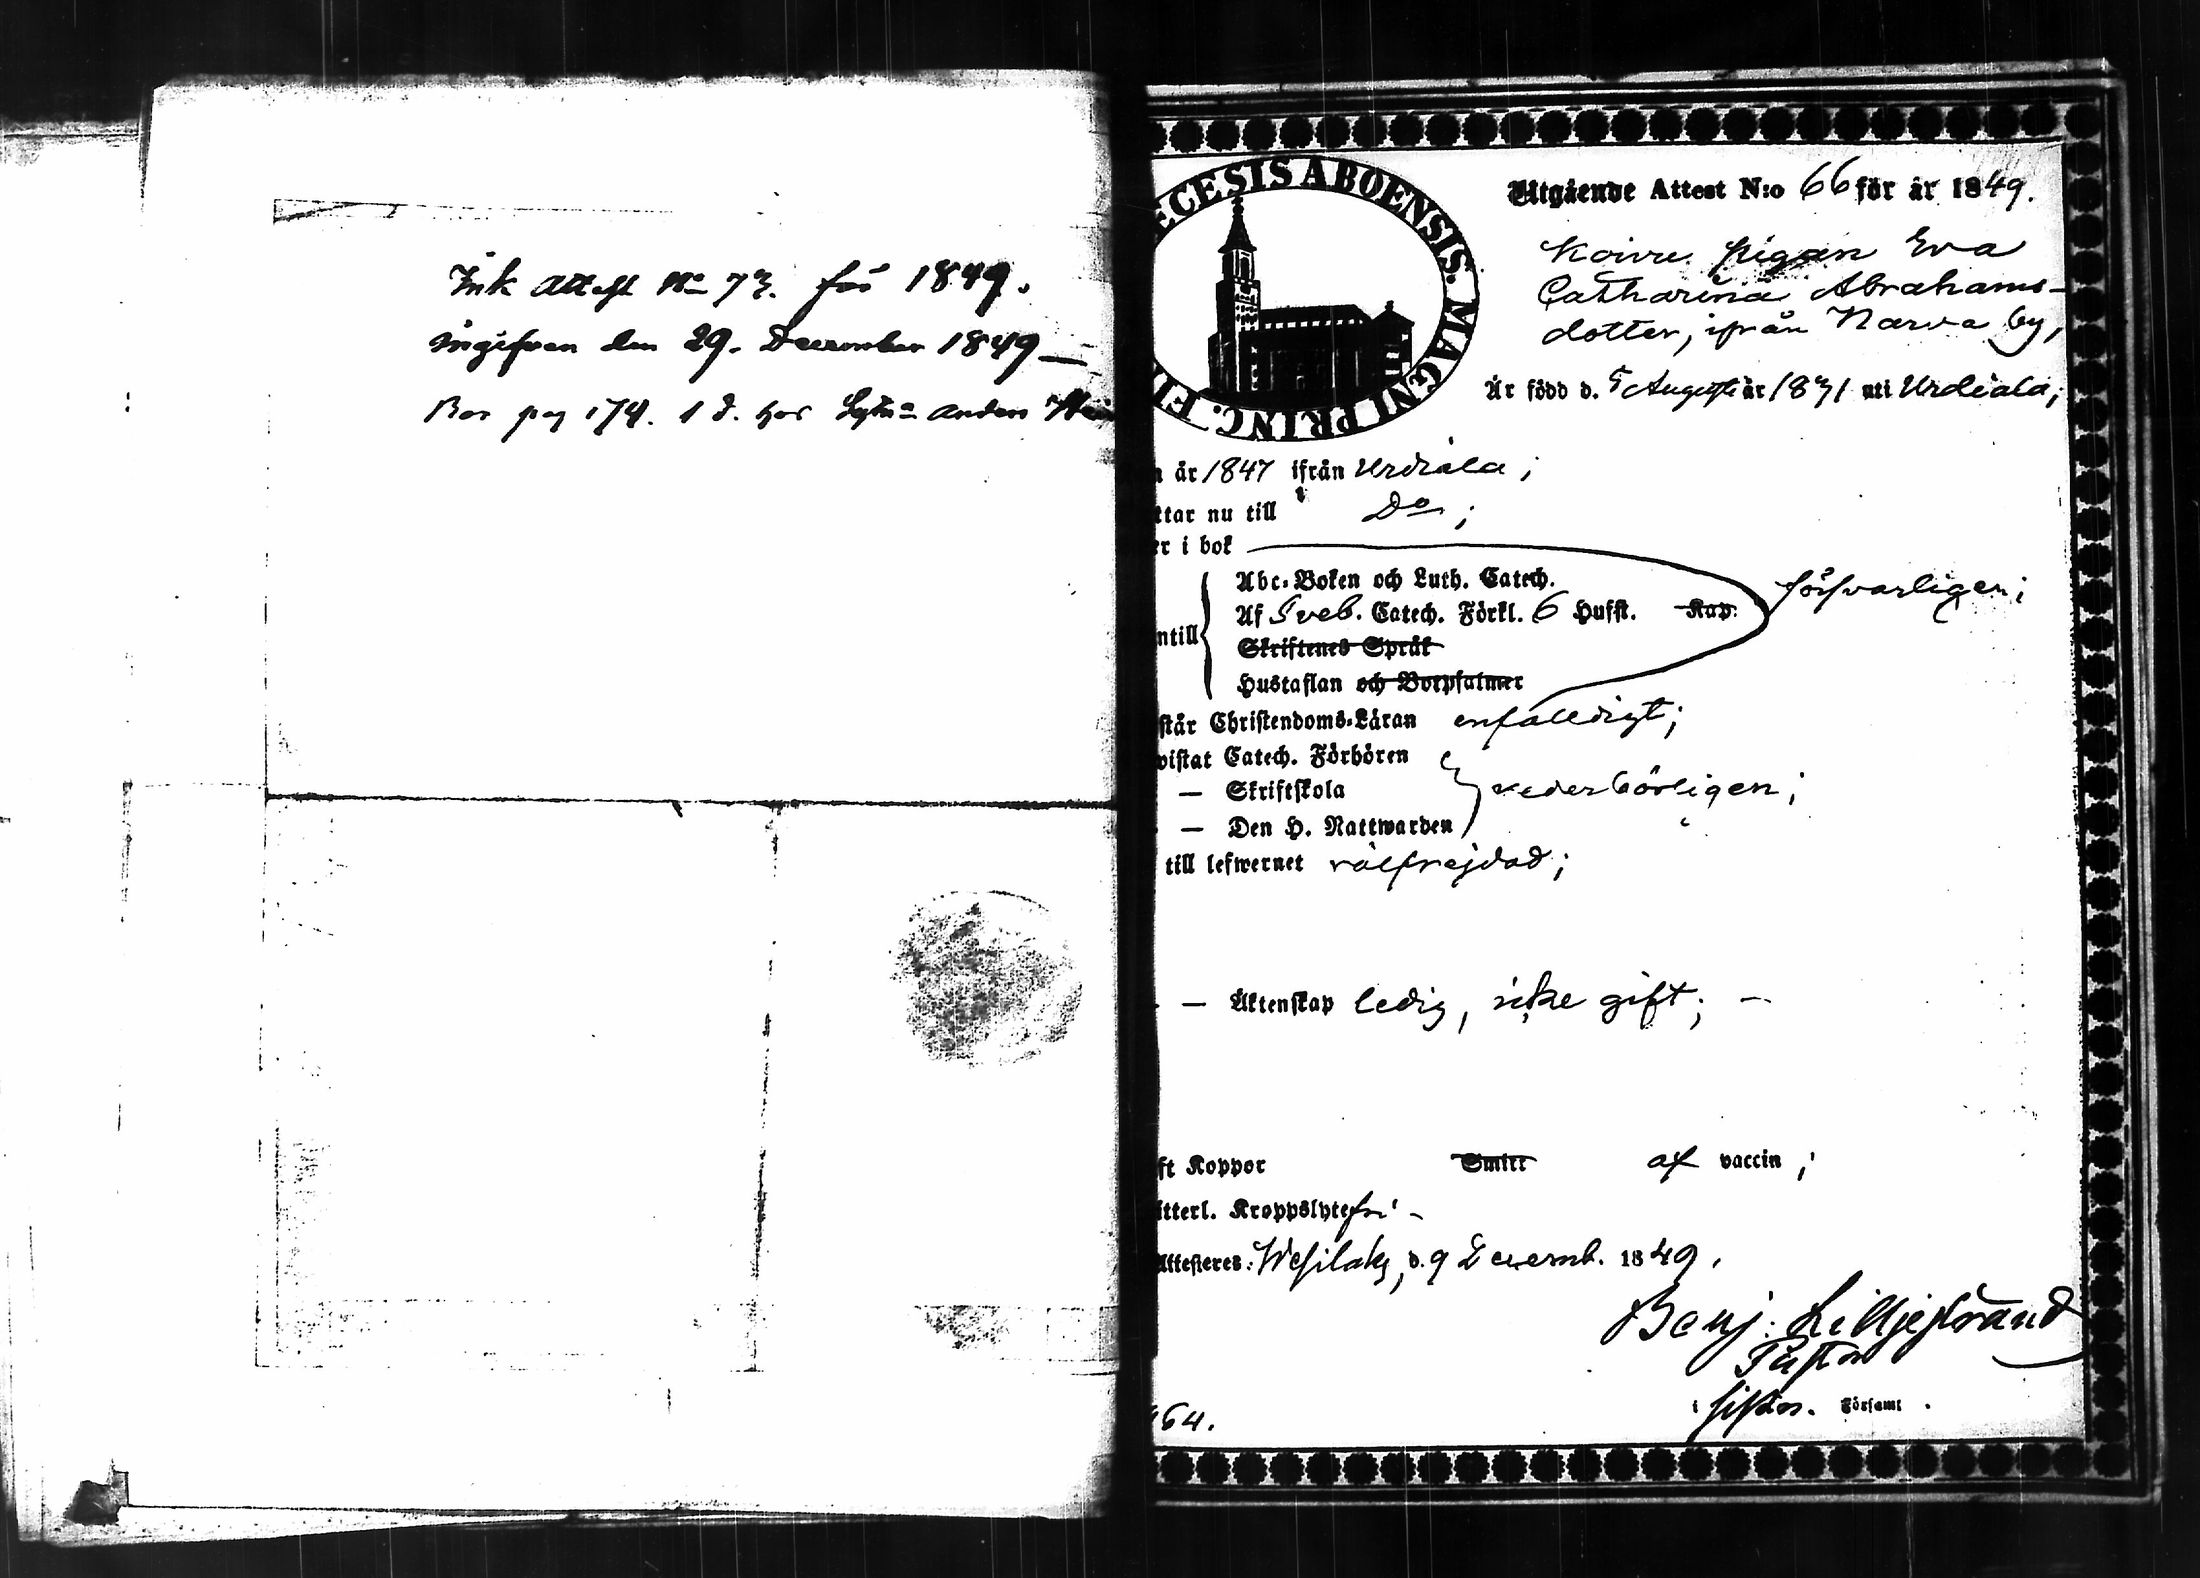 Ink Attest No 73. för 1849.
ingifven den 29. December 1849
Bor pag 174. 1 d. hos Anders
ECESIS ABOENSIS. MAGNI PRINC. FI
Utgående Attest N:o 66 för år 1849.
Koivu pigan Eva
Catharina Abrahams-
dotter, ifrån Narva by,
Är född d. 5 Augusti år 1831 uti Urdiala;
n år 1847 ifrån Urdiala;
ttar nu till Do;
er i bok
Abc-Boken och Luth. Catech.
försvarligen;
Af Sveb. Catech. Förkl. 6 Hufst. Kap.
ntill
Skriftenes Språk
Hustaflan och Botpsalmer
står Christendoms-Läran enfalldigt;
vistat Catech. Förhören
— Skriftskola vederbörligen;
— Den H. Nattwarden
till lefwernet välfrejdad;
— Äktenskap ledig, icke gift; —
ft Koppor Smitt af vaccin;
itterl. Kroppslyte fri
Attesteres: Wesilaks, d. 9 Decemb. 1849.
Benj: Lilljestrand
Pastor
i Församl.
164.